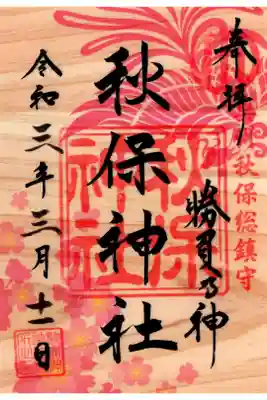 奉拝
秋保総鎮守
勝負の神
秋保神社
秋保
神社
令和三年三月十一日